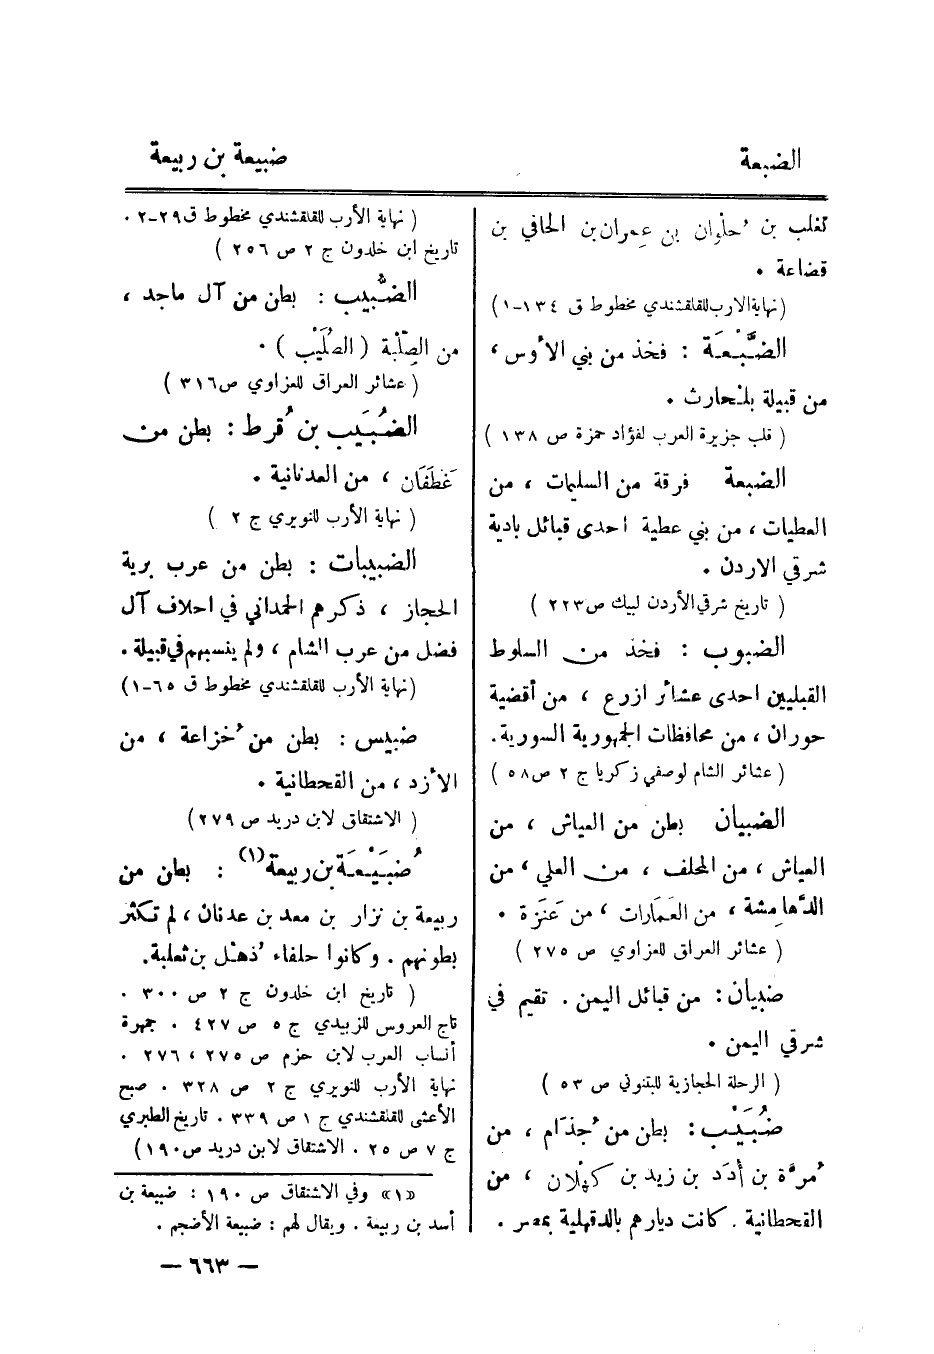 الضبعة
ضبيعة بن ربيعة
تغلب بن حُلوان بن عِمران بن الحافي بن
قضاعة .
( نهاية الارب للقلقشندي مخطوط ق ١٣٤-١ )
الضَّبْعَة : فخذ من بني الأوس ،
من قبيلة بلحارث .
( قلب جزيرة العرب لفؤاد حمزة ص ١٣٨ )
الضبعة فرقة من السليمات ، من
العطيات ، من بني عطية احدى قبائل بادية
شرقي الاردن .
( تاريخ شرقي الأردن لبيك ص ٢٢٣ )
الضبوب : فخذ من السلوط
القبليين احدى عشائر ازرع ، من أقضية
حوران ، من محافظات الجمهورية السورية .
( عشائر الشام لوصفي زكريا ج ٢ ص ٥٨ )
الضبيان بطن من العياش ، من
العياش ، من المخلف ، من العلي ، من
الدَّهامِشة ، من العَمارات ، من عَنَزة .
( عشائر العراق للعزاوي ص ٢٧٥ )
ضبيان : من قبائل اليمن . تقيم في
شرقي اليمن .
( الرحلة الحجازية للبتنوني ص ٥٣ )
ضُبَيْب : بطن من جُذام ، من
مُرَّة بن أُدَد بن زيد بن كهْلان ، من
القحطانية . كانت ديارهم بالدقهلية بمصر .
( نهاية الأرب للقلقشندي مخطوط ق ٢٩-٢ .
تاريخ ابن خلدون ج ٢ ص ٢٥٦ )
الضُّبيب : بطن من آل ماجد ،
من الصِلْبة ( الصُلَيْب ) .
( عشائر العراق للعزاوي ص ٣١٦ )
الضُبَيب بن قُرط : بطن من
غَطَفَان ، من العدنانية .
( نهاية الأرب للنويري ج ٢ )
الضبيبات : بطن من عرب برية
الحجاز ، ذكرهم الحمداني في احلاف آل
فضل من عرب الشام ، ولم ينسبهم في قبيلة .
( نهاية الأرب للقلقشندي مخطوط ق ٦٥-١ )
ضبيس : بطن من خُزاعة ، من
الأزد ، من القحطانية .
( الاشتقاق لابن دريد ص ٢٧٩ )
ضُبَيْعَة بن ربيعة (١) : بطن من
ربيعة بن نزار بن معد بن عدنان ، لم تكثر
بطونهم . وكانوا حلفاء ذُهل بن ثعلبة .
( تاريخ ابن خلدون ج ٢ ص ٣٠٠ .
تاج العروس للزبيدي ج ٥ ص ٤٢٧ . جمهرة
أنساب العرب لابن حزم ص ٢٧٥ ، ٢٧٦ .
نهاية الأرب للنويري ج ٢ ص ٣٢٨ . صبح
الأعشى للقلقشندي ج ١ ص ٣٣٩ . تاريخ الطبري
ج ٧ ص ٢٥ . الاشتقاق لابن دريد ص ١٩٠ )
«١» وفي الاشتقاق ص ١٩٠ : ضبيعة بن
أسد بن ربيعة . ويقال لهم : ضبيعة الأضجم .
— ٦٦٣ —